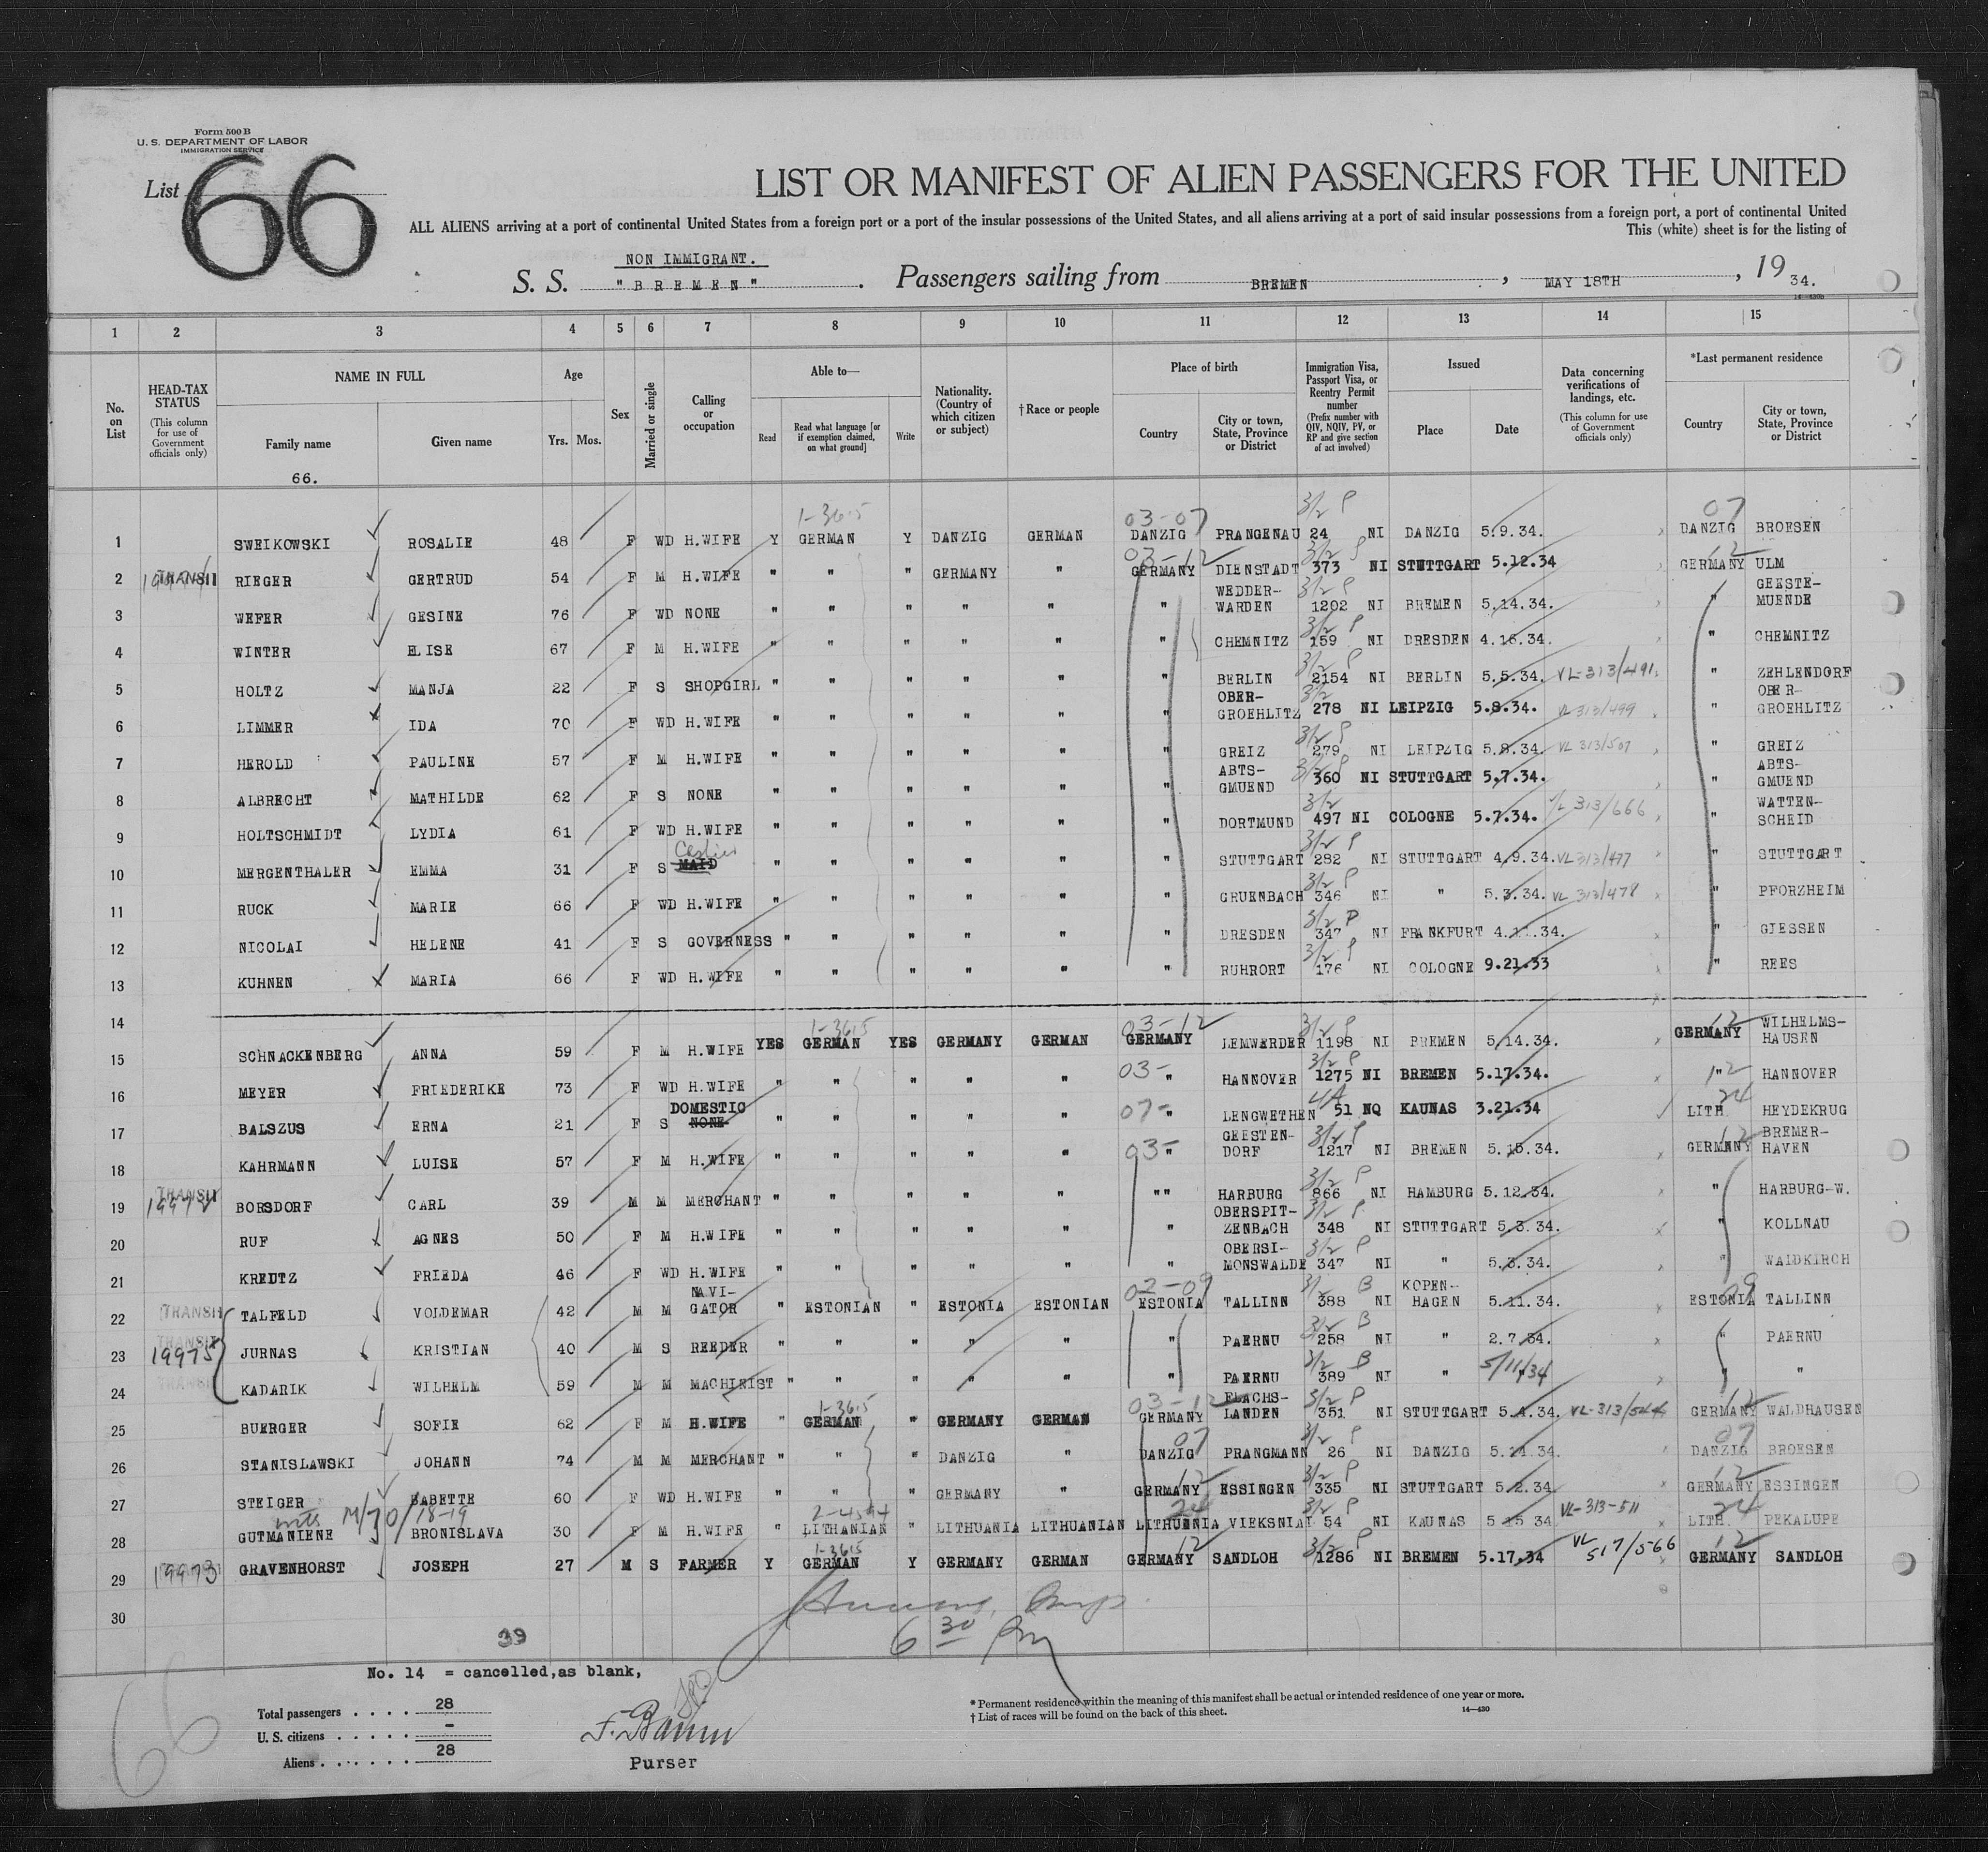 Form 500 B
U. S. DEPARTMENT OF LABOR
IMMIGRATION SERVICE
List 66
LIST OR MANIFEST OF ALIEN PASSENGERS FOR THE UNITED
ALL ALIENS arriving at a port of continental United States from a foreign port or a port of the insular possessions of the United States, and all aliens arriving at a port of said insular possessions from a foreign port, a port of continental United
This (white) sheet is for the listing of
NON IMMIGRANT.
S. S. "BREMEN". Passengers sailing from BREMEN, MAY 18TH, 19 34.
14—430b
1 2 3 4 5 6 7 8 9 10 11 12 13 14 15
No. on List
HEAD-TAX STATUS (This column for use of Government officials only)
NAME IN FULL Family name Given name
Age Yrs. Mos.
Sex
Married or single
Calling or occupation
Able to— Read Read what language [or if exemption claimed, on what ground] Write
Nationality. (Country of which citizen or subject)
†Race or people
Place of birth Country City or town, State, Province or District
Immigration Visa, Passport Visa, or Reentry Permit number (Prefix number with QIV, NQIV, PV, or RP and give section of act involved)
Issued Place Date
Data concerning verifications of landings, etc. (This column for use of Government officials only)
*Last permanent residence Country City or town, State, Province or District
66.
1-3615 03-07 3/2 P 07
1 SWEIKOWSKI ROSALIE 48 F WD H.WIFE Y GERMAN Y DANZIG GERMAN DANZIG PRANGENAU 24 NI DANZIG 5.9.34. DANZIG BROESEN
03-12 3/2 P 12
2 TRANSIT RIEGER GERTRUD 54 F M H.WIFE " " " GERMANY " GERMANY DIENSTADT 373 NI STUTTGART 5.12.34 GERMANY ULM
3 WEFER GESINE 76 F WD NONE " " " " " " WEDDER-WARDEN 3/2 P 1202 NI BREMEN 5.14.34. " GEESTE-MUENDE
4 WINTER ELISE 67 F M H.WIFE " " " " " " CHEMNITZ 3/2 P 159 NI DRESDEN 4.16.34. " CHEMNITZ
5 HOLTZ MANJA 22 F S SHOPGIRL " " " " " " BERLIN 3/2 P 2154 NI BERLIN 5.5.34. VL-313/491 " ZEHLENDORF
6 LIMMER IDA 70 F WD H.WIFE " " " " " " OBER-GROEHLITZ 3/2 278 NI LEIPZIG 5.8.34. VL 313/499 " OBER-GROEHLITZ
7 HEROLD PAULINE 57 F M H.WIFE " " " " " " GREIZ 3/2 P 279 NI LEIPZIG 5.8.34. VL 313/507 " GREIZ
8 ALBRECHT MATHILDE 62 F S NONE " " " " " " ABTS-GMUEND 3/2 P 360 NI STUTTGART 5.7.34. " ABTS-GMUEND
9 HOLTSCHMIDT LYDIA 61 F WD H.WIFE " " " " " " DORTMUND 3/2 497 NI COLOGNE 5.7.34. VL 313/666 " WATTEN-SCHEID
10 MERGENTHALER EMMA 31 F S MAID " " " " " " STUTTGART 3/2 P 282 NI STUTTGART 4.9.34. VL 313/477 " STUTTGART
11 RUCK MARIE 66 F WD H.WIFE " " " " " " GRUENBACH 3/2 P 346 NI " 5.3.34. VL 313/478 " PFORZHEIM
12 NICOLAI HELENE 41 F S GOVERNESS " " " " " " DRESDEN 3/2 P 347 NI FRANKFURT 4.11.34. " GIESSEN
13 KUHNEN MARIA 66 F WD H.WIFE " " " " " " RUHRORT 3/2 P 176 NI COLOGNE 9.21.33 " REES
14
1-3615 03-12 3/2 P 12
15 SCHNACKENBERG ANNA 59 F M H.WIFE YES GERMAN YES GERMANY GERMAN GERMANY LEMWERDER 1198 NI BREMEN 5.14.34. GERMANY WILHELMS-HAUSEN
16 MEYER FRIEDERIKE 73 F WD H.WIFE " " " " " 03- " HANNOVER 3/2 P 1275 NI BREMEN 5.17.34. 12 " HANNOVER
17 BALSZUS ERNA 21 F S DOMESTIC NONE " " " " " 07- " LENGWETHEN 4A 51 NQ KAUNAS 3.21.34 24 LITH. HEYDEKRUG
18 KAHRMANN LUISE 57 F M H.WIFE " " " " " 03- " GEESTEN-DORF 3/2 P 1217 NI BREMEN 5.15.34. 12 GERMANY BREMER-HAVEN
19 TRANSIT BORSDORF CARL 39 M M MERCHANT " " " " " " " HARBURG 3/2 P 866 NI HAMBURG 5.12.34. " HARBURG-W.
20 RUF AGNES 50 F M H.WIFE " " " " " " OBERSPIT-ZENBACH 3/2 P 348 NI STUTTGART 5.3.34. " KOLLNAU
21 KREUTZ FRIEDA 46 F WD H.WIFE " " " " " " OBERSI-MONSWALDE 3/2 P 347 NI " 5.3.34. " WALDKIRCH
22 TRANSIT TALFELD VOLDEMAR 42 M M NAVI-GATOR " ESTONIAN " ESTONIA ESTONIAN 02-09 ESTONIA TALLINN 3/2 B 388 NI KOPEN-HAGEN 5.11.34. 09 ESTONIA TALLINN
23 TRANSIT 19975 JURNAS KRISTIAN 40 M S REEDER " " " " " " PAERNU 3/2 B 258 NI " 2.7.34. " PAERNU
24 TRANSIT KADARIK WILHELM 59 M M MACHINIST " " " " " " PAERNU 3/2 B 389 NI " 5/11/34 " "
25 BUERGER SOFIE 62 F M H.WIFE " 1-3615 GERMAN " GERMANY GERMAN 03-12 GERMANY FLACHS-LANDEN 3/2 P 351 NI STUTTGART 5.4.34. VL-313/544 12 GERMANY WALDHAUSEN
26 STANISLAWSKI JOHANN 74 M M MERCHANT " " " DANZIG " 07 DANZIG PRANGMANN 3/2 P 26 NI DANZIG 5.14.34. 07 DANZIG BROESEN
27 STEIGER BABETTE 60 F WD H.WIFE " " " GERMANY " 12 GERMANY ESSINGEN 3/2 P 335 NI STUTTGART 5.2.34 12 GERMANY ESSINGEN
28 GUTMANIENE M/30/18-19 BRONISLAVA 30 F M H.WIFE " 2-4594 LITHANIAN " LITHUANIA LITHUANIAN 24 LITHUENIA VIEKSNIAI 3/2 P 54 NI KAUNAS 5 15 34 VL-313-511 24 LITH. PEKALUPE
29 19973 GRAVENHORST JOSEPH 27 M S FARMER Y 1-3615 GERMAN Y GERMANY GERMAN 12 GERMANY SANDLOH 3/2 P 1286 NI BREMEN 5.17.34 VL 517/566 12 GERMANY SANDLOH
30
6 30 Pm
39
No. 14 = cancelled,as blank,
Total passengers . . . . 28
U. S. citizens . . . . . –
Aliens . . . . . . 28
66
F. Baum
Purser
* Permanent residence within the meaning of this manifest shall be actual or intended residence of one year or more.
† List of races will be found on the back of this sheet.
14—430